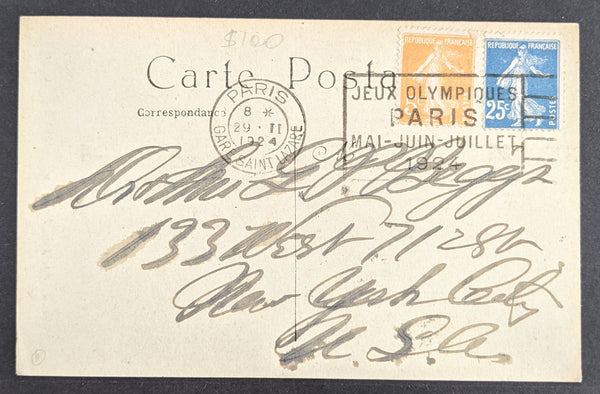 $100
Carte Posta
Correspondance
PARIS
8 *
29 · II
1924
GARE SAINT LAZARE
REPUBLIQUE FRANÇAISE
REPUBLIQUE FRANÇAISE
25c
POSTES
JEUX OLYMPIQUES
PARIS
MAI-JUIN-JUILLET
1924
133 West 71 St
New York City
U. S. A.